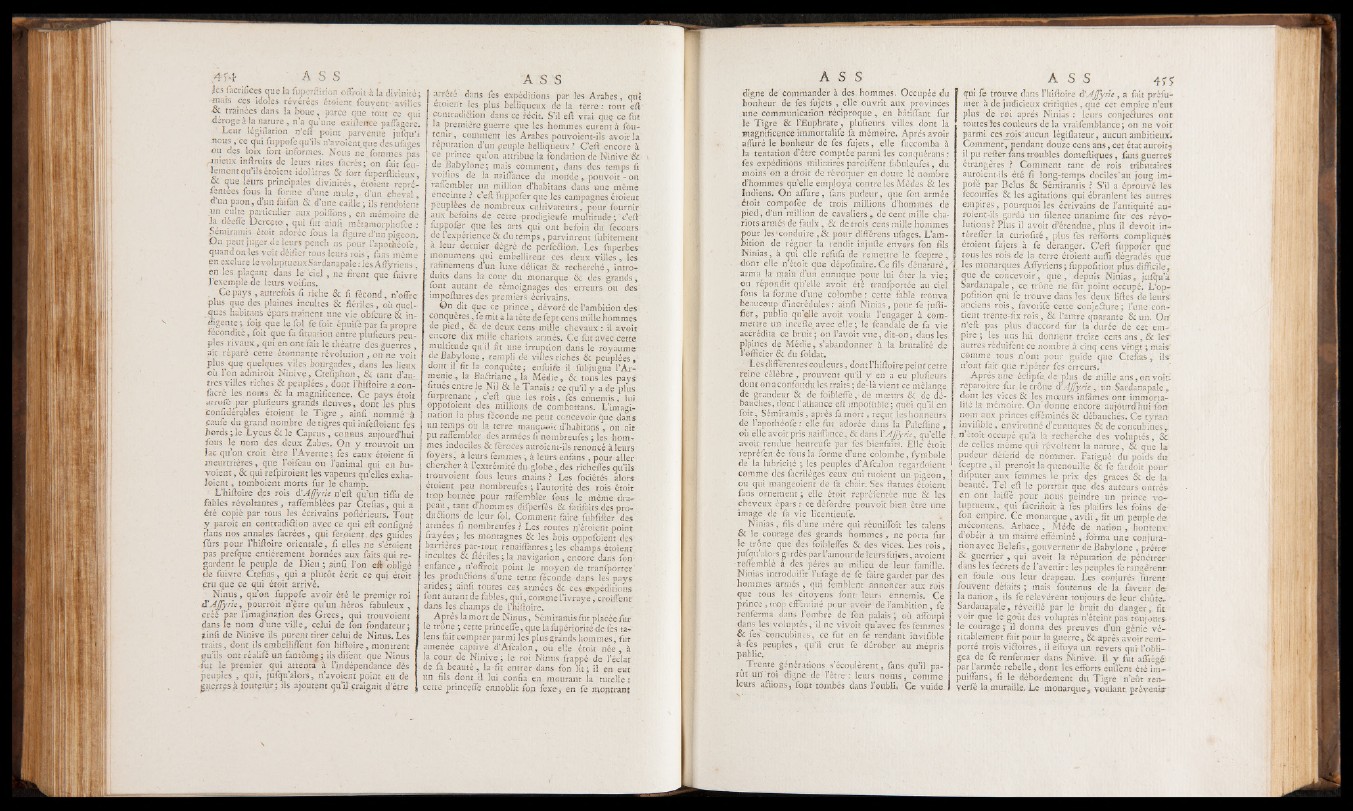 454 A S S
les sacrifices que la superstition offroit à la divinité ;
mais ces idoles révérées étoient souvent avilies
& traînées dans la boue, parce que tout ce qui
déroge à la nature, n'a qu'une existence passagère.
Leur législation n'est point parvenue jusqu'à
nous, ce qui suppose qu'ils n'avoient que des usages
ou des loix fort informes. Nous ne sommes pas
mieux instruits de leurs rites sacrés ; on sait seu-
lement qu'ils étoient idolâtres & fort superstitieux,
& que leurs principales divinités, étoient repré-
sentées sous la forme d'une mule, d'un cheval,
d'un paon, d'un faisan & d'une caille ; ils rendoient
un culte particulier aux poissons, en mémoire de
la déesse Derceto, qui fut ainsi métamorphosée :
Sémiramis étoit adorée sous la figure d'un pigeon.
On peut juger de leurs penchans pour l'apothéose,
quand on les voit déifier tous leurs rois, sans même
en exclure le voluptueux Sardanapale : les Assyriens,
en les plaçant dans le ciel, ne firent que suivre
l'exemple de leurs voisins.
Ce pays, autrefois si riche & si fécond, n'offre
plus que des plaines incultes & stériles, où quel-
ques habitans épars traînent une vie obscure & in-
digente ; soit que le sol se soit épuisé par sa propre
fécondité, soit que sa situation entre plusieurs peu-
ples rivaux, qui en ont fait le théatre des guerres,
ait préparé cette étonnante révolution, on ne voit
plus que quelques villes bourgades, dans les lieux
où l'on admiroit Ninive, Ctésiphon, & tant d'au-
tres villes riches & peuplées, dont l'histoire a con-
sacré les noms & la magnificence. Ce pays étoit
arrosé par plusieurs grands fleuves, dont les plus
considérables étoient le Tigre, ainsi nommé à
cause du grand nombre de tigres qui infestoient ses
bords ; le Lycus & le Caprus, connus aujourd'hui
sous le nom des deux Zabes. On y trouvoit un
lac qu'on croit être l'Averne ; ses eaux étoient si
meurtrières, que l'oiseau ou l'animal qui en bu-
voient, & qui respiroient les vapeurs qu'elles exha-
loient, tomboient morts sur le champ.
L'histoire des rois d'Assyrie n'est qu'un tissu de
fables révoltantes, rassemblées par Ctesias, qui a
été copié par tous les écrivains postérieurs. Tout
y paroît en contradiction avec ce qui est consigné
dans nos annales sacrées, qui seroient des guides
sûrs pour l'histoire orientale, si elles ne s'étoient
pas presque entiérement bornées aux faits qui re-
gardent le peuple de Dieu ; ainsi l'on est obligé
de suivre Ctesias, qui a plutôt écrit ce qui étoit
cru que ce qui étoit arrivé.
Ninus, qu'on suppose avoir été le premier roi
d'Assyrie, pourroit n'être qu'un héros fabuleux,
créé par l'imagination des Grecs, qui trouvoient
dans le nom d'une ville, celui de son fondateur ;
ainsi de Ninive ils purent tirer celui de Ninus. Les
traits, dont ils embellissent son histoire, montrent
qu'ils ont réalisé un fantôme ; ils disent que Ninus
fut le premier qui attenta à l'indépendance des
peuples, qui, jusqu'alors, n'avoient point eu de
guerres à soutenir ; ils ajoutent qu'il craignit d'être
A S S
arrêté dans ses expéditions par les Arabes, qui
étoient les plus belliqueux de la terre : tout est
contradiction dans ce récit. S'il est vrai que ce fut
la première guerre que les hommes eurent à sou-
tenir, comment les Arabes pouvoient-ils avoir la
réputation d'un peuple belliqueux ? C'est encore à
ce prince qu'on attribue la fondation de Ninive &
de Babylone ; mais comment, dans des temps si
voisins de la naissance du monde, pouvoit-on
rassembler un million d'habitans dans une même
enceinte ? c'est supposer que les campagnes étoient
peuplées de nombreux cultivateurs, pour fournir
aux besoins de cette prodigieuse multitude ; c'est
supposer que les arts qui ont besoin du secours
de l'expérience & du temps, parvinrent subitement
à leur dernier dégré de perfection. Les superbes
monumens qui embellirent ces deux villes, les
rafinemens d'un luxe délicat & recherché, intro-
duits dans la cour du monarque & des grands,
sont autant de témoignages des erreurs ou des
impostures des premiers écrivains.
On dit que ce prince, dévoré de l'ambition des
conquêtes, se mit à la tête de sept cens mille hommes
de pied, & de deux cens mille chevaux : il avoit
encore dix mille chariots armés. Ce fut avec cette
multitude qu'il fit une irruption dans le royaume
de Babylone, rempli de villes riches & peuplées,
dont il fit la conquête ; ensuite il subjugua l'Ar-
menie, la Bactriane, la Médie, & tous les pays
situés entre le Nil & le Tanaïs : ce qu'il y a de plus
surprenant, c'est que les rois, ses ennemis, lui
opposoient des millions de combattans. L'imagi-
nation la plus féconde ne peut concevoir que dans
un temps où la terre manquoit d'habitans, on ait
pu rassembler des armées si nombreuses ; les hom-
mes indociles & féroces auroient-ils renoncé à leurs
foyers, à leurs femmes, à leurs enfans, pour aller
chercher à l'extrêmité du globe, des richesses qu'ils
trouvoient sous leurs mains ? Les sociétés alors
étoient peu nombreuses ; l'autorité des rois étoit
trop bornée pour rassembler sous le même dra-
peau, tant d'hommes dispersés & satisfaits des pro-
ductions de leur sol. Comment faire subsister des
armées si nombreuses ? Les routes n'étoient point
frayées ; les montagnes & les bois opposoient des
barrières par-tout renaissantes ; les champs étoient
incultes & stériles ; la navigation, encore dans son
enfance, n'offroit point le moyen de transporter
les productions d'une terre féconde dans les pays
arides ; ainsi toutes ces armées & ces expéditions
sont autant de fables, qui, comme l'ivraye, croissent
dans les champs de l'histoire.
Après la mort de Ninus, Sémiramis fut placée sur
le trône ; cette princesse, que la supériorité de ses ta-
lens fait compter parmi les plus grands hommes, fut
amenée captive d'Ascalon, où elle étoit née, à
la cour de Ninive ; le roi Ninus frappé de l'éclat
de sa beauté, la fit entrer dans son lit ; il en eut
un fils dont il lui confia en mourant la tutelle :
cette princesse ennoblit son sexe, en se montrant
A S S
digne de commander à des hommes. Occupée du
bonheur de ses sujets, elle ouvrit aux provinces
une communication réciproque, en bâtissant sur
le Tigre & l'Euphrate, plusieurs villes dont la
magnificence immortalise sa mémoire. Après avoir
assuré le bonheur de ses sujets, elle succomba à
la tentation d'être comptée parmi les conquérans :
ses expéditions militaires paroissent fabuleuses, du
moins on a droit de révoquer en doute le nombre
d'hommes qu'elle employa contre les Médes & les
Indiens. On assure, sans pudeur, que son armée
étoit composée de trois millions d'hommes de
pied, d'un million de cavaliers, de cent mille cha-
riots armés de faulx, & de trois cens mille hommes
pour les conduire, & pour différens usages. L'am-
bition de régner la rendit injuste envers son fils
Ninias, à qui elle refusa de remettre le sceptre,
dont elle n'étoit que dépositaire. Ce fils dénaturé,
arma la main d'un eunuque pour lui ôter la vie ;
on répandit qu'elle avoit été transportée au ciel
sous la forme d'une colombe : cette fable trouva
beaucoup d'incrédules : ainsi Ninias, pour se justi-
fier, publia qu'elle avoit voulu l'engager à com-
mettre un inceste avec elle ; le scandale de sa vie
accrédita ce bruit ; on l'avoit vue, dis-on, dans les
plaines de Médie, s'abandonner à la brutalité de
l'officier & du soldat.
Les différentes couleurs, dont l'histoire peint cette
reine célèbre, prouvent qu'il y en a eu plusieurs
dont on a confondu les traits : de-là vient ce mélange
de grandeur & de foiblesse, de mœurs & de dé-
bauches, dont l'alliance est impossible ; quoi qu'il en
soit, Sémiramis, après sa mort, reçut les honneurs
de l'apothéose : elle fut adorée dans la Palestine,
où elle avoit pris naissance, & dans l'Assyrie, qu'elle
avoit rendue heureuse par ses bienfaits. Elle étoit
représentée sous la forme d'une colombe, symbole
de la lubricité ; les peuples d'Ascalon regardoient
comme des sacriléges ceux qui tuoient un pigeon,
ou qui mangeoient de sa chair. Ses statues étoient
sans ornement ; elle étoit représentée nue & les
cheveux épars : ce désordre pouvoit bien être une
image de sa vie licentieuse.
Ninias, fils d'une mère qui réunissoit les talens
& le courage des grands hommes, ne porta sur
le trône que des foiblesses & des vices. Les rois,
jusqu'alors gardés par l'amour de leurs sujets, avoient
ressemblé à des pères au milieu de leur famille.
Ninias introduisit l'usage de se faire garder par des
hommes armés, qui semblent annoncer aux rois
que tous les citoyens sont leurs ennemis. Ce
prince, trop efféminé pour avoir de l'ambition, se
renferma dans l'ombre de son palais ; où assoupi
dans les voluptés, il ne vivoit qu'avec ses femmes
& ses concubines, ce fut en se rendant invisible
à ses peuples, qu'il crut se dérober au mépris
public.
Trente générations s'écoulèrent, sans qu'il pa-
rût un roi digne de l'être : leurs noms, comme
leurs actions, sont tombés dans l'oubli. Ce vuide
A S S 455
qui se trouve dans l'histoire d'Assyrie, a fait présu-
mer à de judicieux critiques, que cet empire n'eut
plus de roi après Ninias : leurs conjectures ont
toutes les couleurs de la vraisemblance ; on ne voit
parmi ces rois aucun législateur, aucun ambitieux.
Comment, pendant douze cens ans, cet état auroit-
il pu rester sans troubles domestiques, sans guerres
étrangères ? Comment tant de rois tributaires
auroient-ils été si long-temps dociles au joug im-
posé par Belus & Sémiramis ? S'il a éprouvé les
secousses & les agitations qui ébranlent les autres
empires, pourquoi les écrivains de l'antiquité au-
roient-ils gardé un silence unanime sur ces révo-
lutions ? Plus il avoit d'étendue, plus il devoit in-
téresser la curiosité, plus ses ressorts compliqués
étoient sujets à se déranger. C'est supposer que
tous les rois de la terre étoient aussi dégradés que
les monarques Assyriens ; supposition plus difficile,
que de concevoir, que, depuis Ninias, jusqu'à
Sardanapale, ce trône ne fût point occupé. L'op-
position qui se trouve dans les deux listes de leurs
anciens rois, favorise cette conjecture ; l'une con-
tient trente-six rois, & l'autre quarante & un. On
n'est pas plus d'accord sur la durée de cet em-
pire ; les uns lui donnent treize cens ans, & les
autres réduisent ce nombre à cinq cens vingt ; mais
comme tous n'ont pour guide que Ctesias, ils
n'ont fait que répéter ses erreurs.
Après une éclipse de plus de mille ans, on voit
reparoître sur le trône d'Assyrie, un Sardanapale,
dont les vices & les mœurs infâmes ont immorta-
lisé la mémoire. On donne encore aujourd'hui son
nom aux princes efféminés & débauchés. Ce tyran
invisible, environné d'eunuques & de concubines,
n'étoit occupé qu'à la recherche des voluptés, &
de celles même qui révoltent la nature, & que la
pudeur défend de nommer. Fatigué du poids du
sceptre, il prenoit la quenouille & se fardoit pour
disputer aux femmes le prix des graces & de la
beauté. Tel est le portrait que des auteurs outrés
en ont laissé pour nous peindre un prince vo-
luptueux, qui sacrifioit à ses plaisirs les soins de
son empire. Ce monarque, avili, fit un peuple de
mécontens. Arbace, Méde de nation, honteux
d'obéir à un maître efféminé, forma une conjura-
tion avec Belesis, gouverneur de Babylone, prêtre
& guerrier, qui avoit la réputation de pénétrer
dans les secrets de l'avenir : les peuples se rangèrent
en foule sous leur drapeau. Les conjurés furent
souvent défaits ; mais soutenus de la faveur de
la nation, ils se relevèrent toujours de leur chûte.
Sardanapale, réveillé par le bruit du danger, fit
voir que le goût des voluptés n'éteint pas toujours
le courage ; il donna des preuves d'un génie vé-
ritablement fait pour la guerre, & après avoir rem-
porté trois victoires, il essuya un revers qui l'obli-
gea de se renfermer dans Ninive. Il y fut assiégé
par l'armée rebelle, dont les efforts eussent été im-
puissans, si le débordement du Tigre n'eût ren-
versé la muraille. Le monarque, voulant prévenir